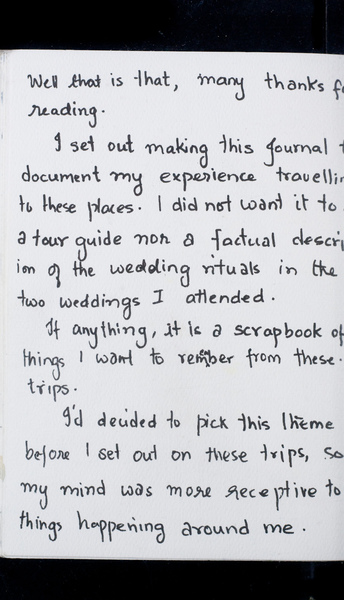 Well that is that, many thanks fo
reading.
I set out making this journal t
document my experience travellin
to these places. I did not want it to
a tour guide nor a factual descri
ion of the wedding rituals in the
two weddings I attended.
If anything, it is a scrapbook of
things I want to remiber from these
trips.
I'd decided to pick this theme
before I set out on these trips, so
my mind was more receptive to
things happening around me.